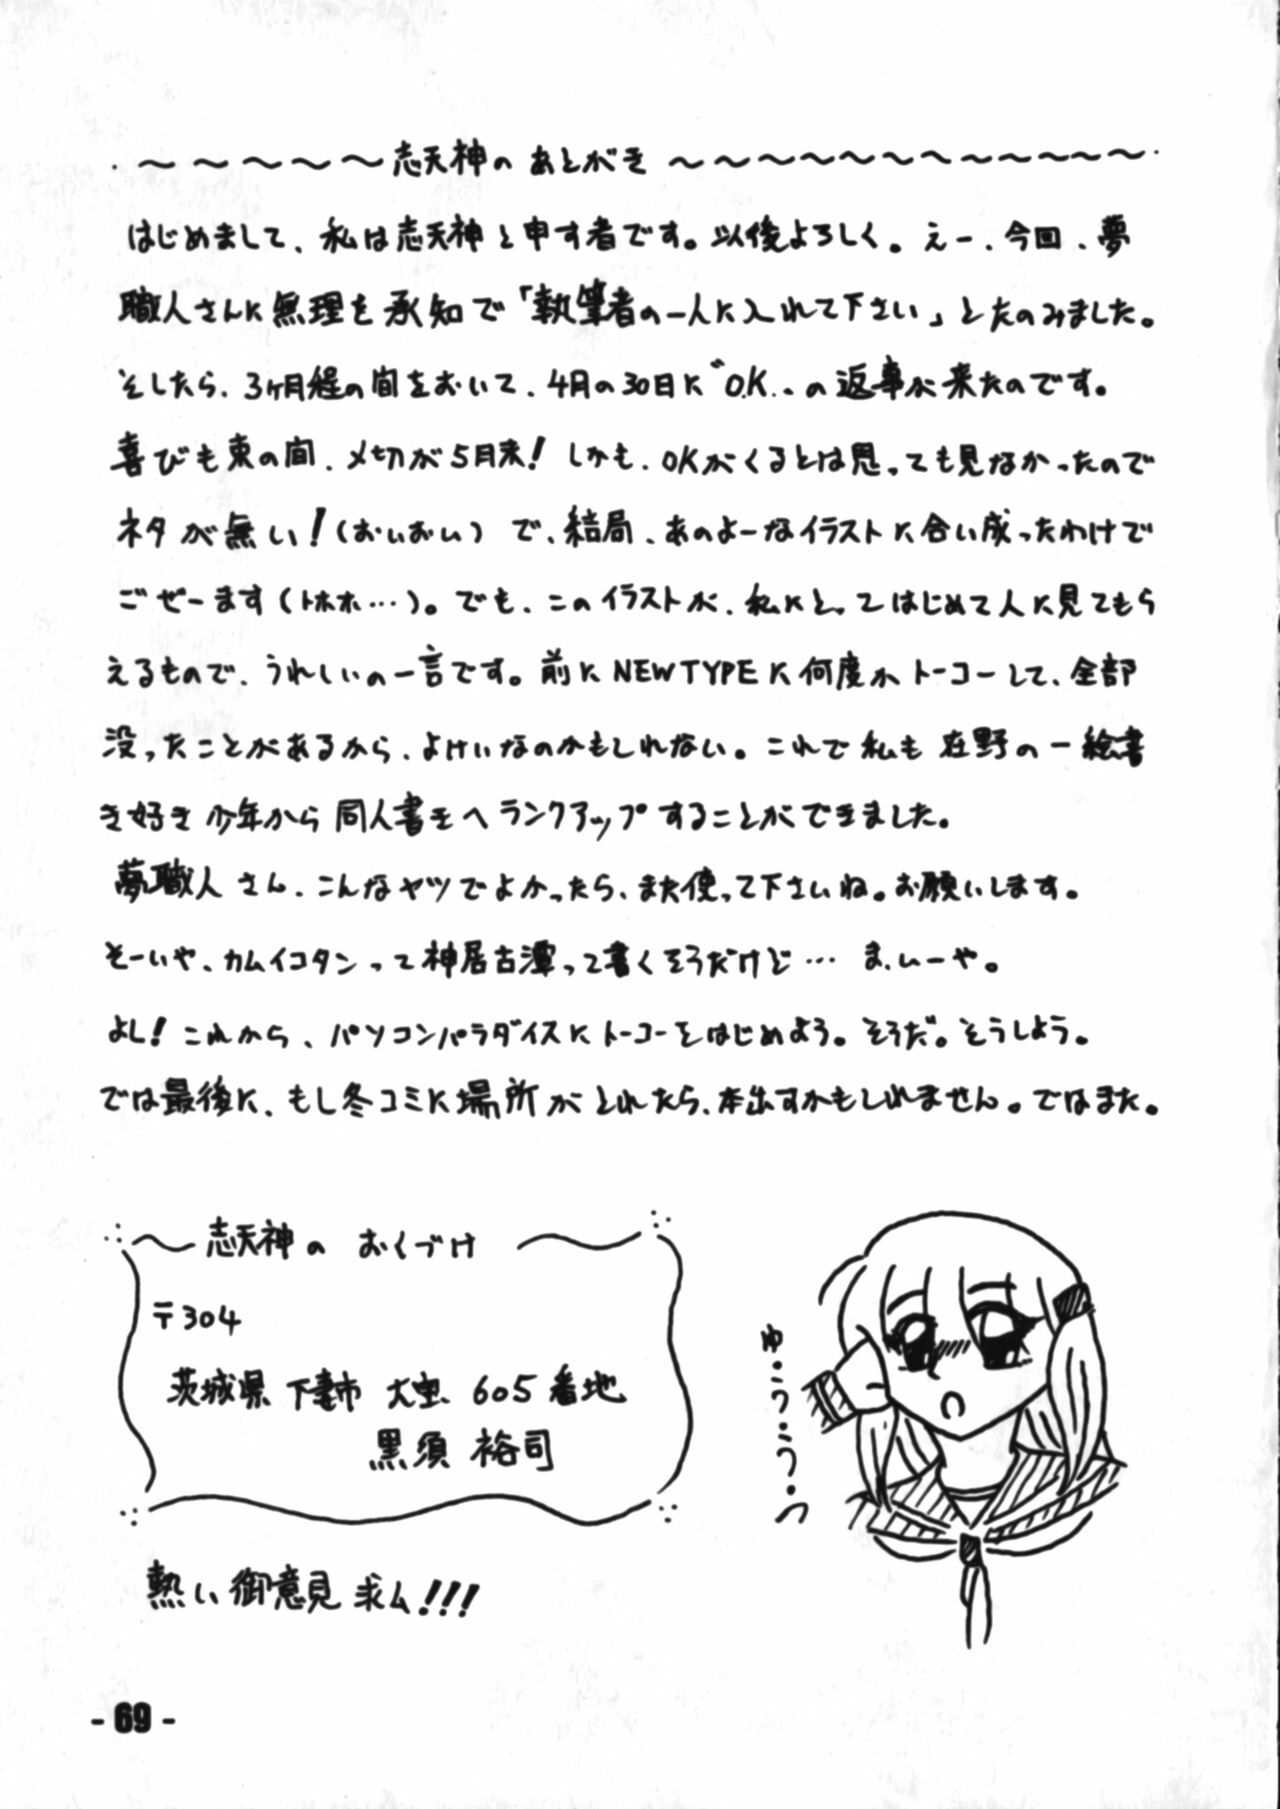 ～～～～～志天神の あとがき～～～～～～～～～～～
はじめまして、私は志天神と申す者です。以後よろしく。えー、今回、夢
職人さんに無理を承知で「執筆者の一人に入れて下さい」とたのみました。
そしたら、3ヶ月程の間をおいて、4月の30日に"O.K.、の返事が来たのです。
喜びも束の間、〆切が5月末! しかも、OKがくるとは思っても見なかったので
ネタが無い!(おいおい) で、結局、あのよーなイラストに合い成ったわけで
ごぜーます(トホホ…)。でも、このイラストが、私にとってはじめて人に見てもら
えるもので、うれしいの一言です。前にNEWTYPEに何度かトーコーして、全部
没ったことがあるから、よけいなのかもしれない。これで私も在野の一絵書
き好き少年から同人書きへランクアップすることができました。
夢職人さん、こんなヤツでよかったら、また使って下さいね。お願いします。
そーいや、カムイコタンって神居古潭って書くそうだけど… ま、いーや。
よし! これから、パソコンパラダイスにトーコーをはじめよう。そうだ。そうしよう。
では最後に、もし冬コミに場所がとれたら、本出すかもしれません。ではまた。
～志天神の おくづけ～
〒304
茨城県 下妻市 大宝 605番地
黒須 裕司
熱い御意見求ム!!!
ゆ・こ・う・つ・
- 69 -